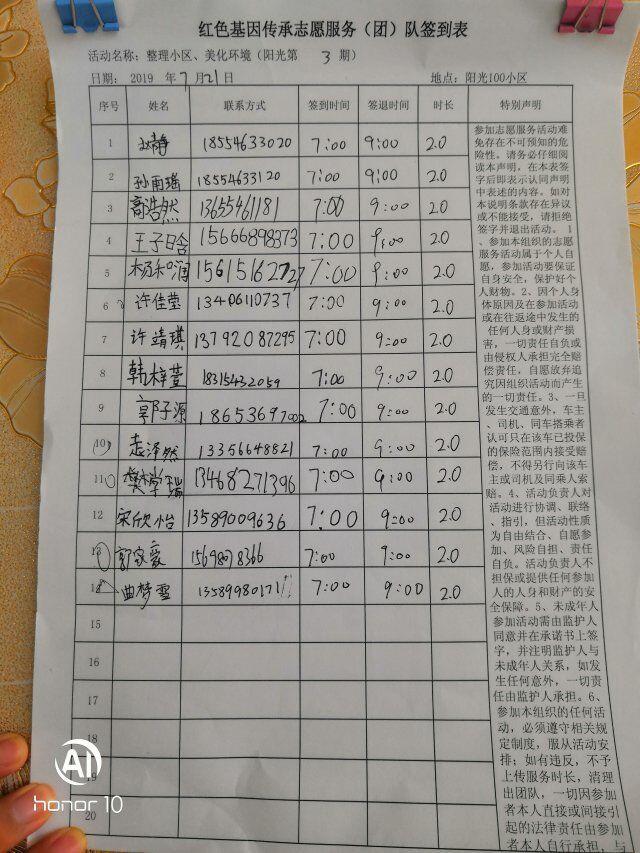 红色基因传承志愿服务（团）队签到表
活动名称：整理小区、美化环境（阳光第 3 期）
日期：2019 年7月21日 地点：阳光100小区
序号 姓名 联系方式 签到时间 签退时间 时长 特别声明
1 赵静 18554633020 7:00 9:00 2.0
2 孙雨瑶 18554633120 7:00 9:00 2.0
3 高浩然 13655461181 7:00 9:00 2.0
4 王子晗 15666898373 7:00 9:00 2.0
5 杨和润 15615162727 7:00 9:00 2.0
6 许佳莹 13406110737 7:00 9:00 2.0
7 许靖琪 13792087295 7:00 9:00 2.0
8 韩梓萱 18315432059 7:00 9:00 2.0
9 郭子源 18653697002 7:00 9:00 2.0
10 孟泽然 13356648821 7:00 9:00 2.0
11 樊学瑞 13468271396 7:00 9:00 2.0
12 宋欣怡 13589009636 7:00 9:00 2.0
13 郭家豪 15698078366 7:00 9:00 2.0
14 曲梦雪 13589980171 7:00 9:00 2.0
15
16
17
18
19
20
参加志愿服务活动难
免存在不可预知的危
险性。请务必仔细阅
读本声明，在本表签
字后即表示认同声明
中表述的内容。如对
本说明条款存在异议
或不能接受，请拒绝
签字并退出活动。 1
、参加本组织的志愿
服务活动属于个人自
愿，参加活动要保证
自身安全，保护好个
人财物。2、因个人身
体原因及在参加活动
或在往返途中发生的
任何人身或财产损
害，一切责任自负或
由侵权人承担完全赔
偿责任，自愿放弃追
究因组织活动而产生
的一切责任。3、一旦
发生交通意外，车主
、司机、同车搭乘者
认可只在该车已投保
的保险范围内接受赔
偿，不得另行向该车
主或司机及同乘人索
赔。4、活动负责人对
活动进行协调、联络
、指引，但活动性质
为自由结合、自愿参
加、风险自担、责任
自负。活动负责人不
担保或提供任何参加
人的人身和财产的安
全保障。5、未成年人
参加活动需由监护人
同意并在承诺书上签
字，并注明监护人与
未成年人关系，如发
生任何意外，一切责
任由监护人承担。6、
参加本组织的任何活
动，必须遵守相关规
定制度，服从活动安
排；如有违反，不予
上传服务时长，清理
出团队，一切因参加
者本人直接或间接引
起的法律责任由参加
者本人自行承担，与
AI
honor 10